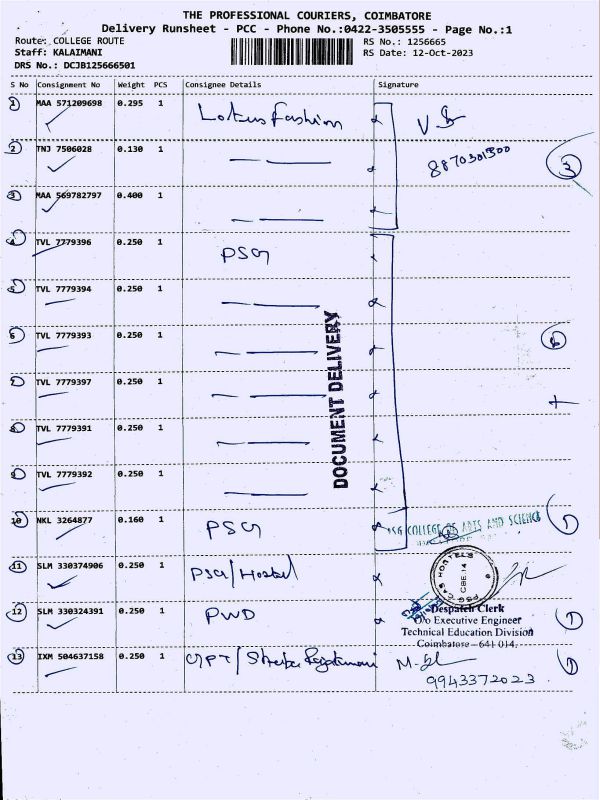 THE PROFESSIONAL COURIERS, COIMBATORE
Delivery Runsheet - PCC - Phone No.:0422-3505555 - Page No.:1
Route: COLLEGE ROUTE
RS No.: 1256665
Staff: KALAIMANI
RS Date: 12-Oct-2023
DRS No.: DCJB125666501
S No Consignment No Weight PCS Consignee Details Signature
1 MAA 571209698 0.295 1 Lotus Fashion
8870301300
2 TNJ 7506028 0.130 1
3
3 MAA 569782797 0.400 1
4 TVL 7779396 0.250 1 PSG
5 TVL 7779394 0.250 1
6 TVL 7779393 0.250 1
7 TVL 7779397 0.250 1
8 TVL 7779391 0.250 1
9 TVL 7779392 0.250 1
DOCUMENT DELIVERY
10 NKL 3264877 0.160 1 PSG
PSG COLLEGE OF ARTS AND SCIENCE
1
11 SLM 330374906 0.250 1 PSG/Hostel
PSG CAS HOSTELS
CBE.14
12 SLM 330324391 0.250 1 PWD
Despatch Clerk
O/o Executive Engineer
Technical Education Division
Coimbatore - 641 014.
1
13 IXM 504637158 0.250 1 GPT/
1
9943372023